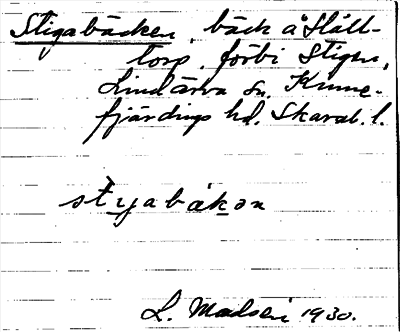 Stigabäcken, bäck å Slätt-
torp, förbi Stigen,
Lindärva sn. Kinne-
fjärdings hd. Skarab. l.
styabäkən
L. Madsén 1930.